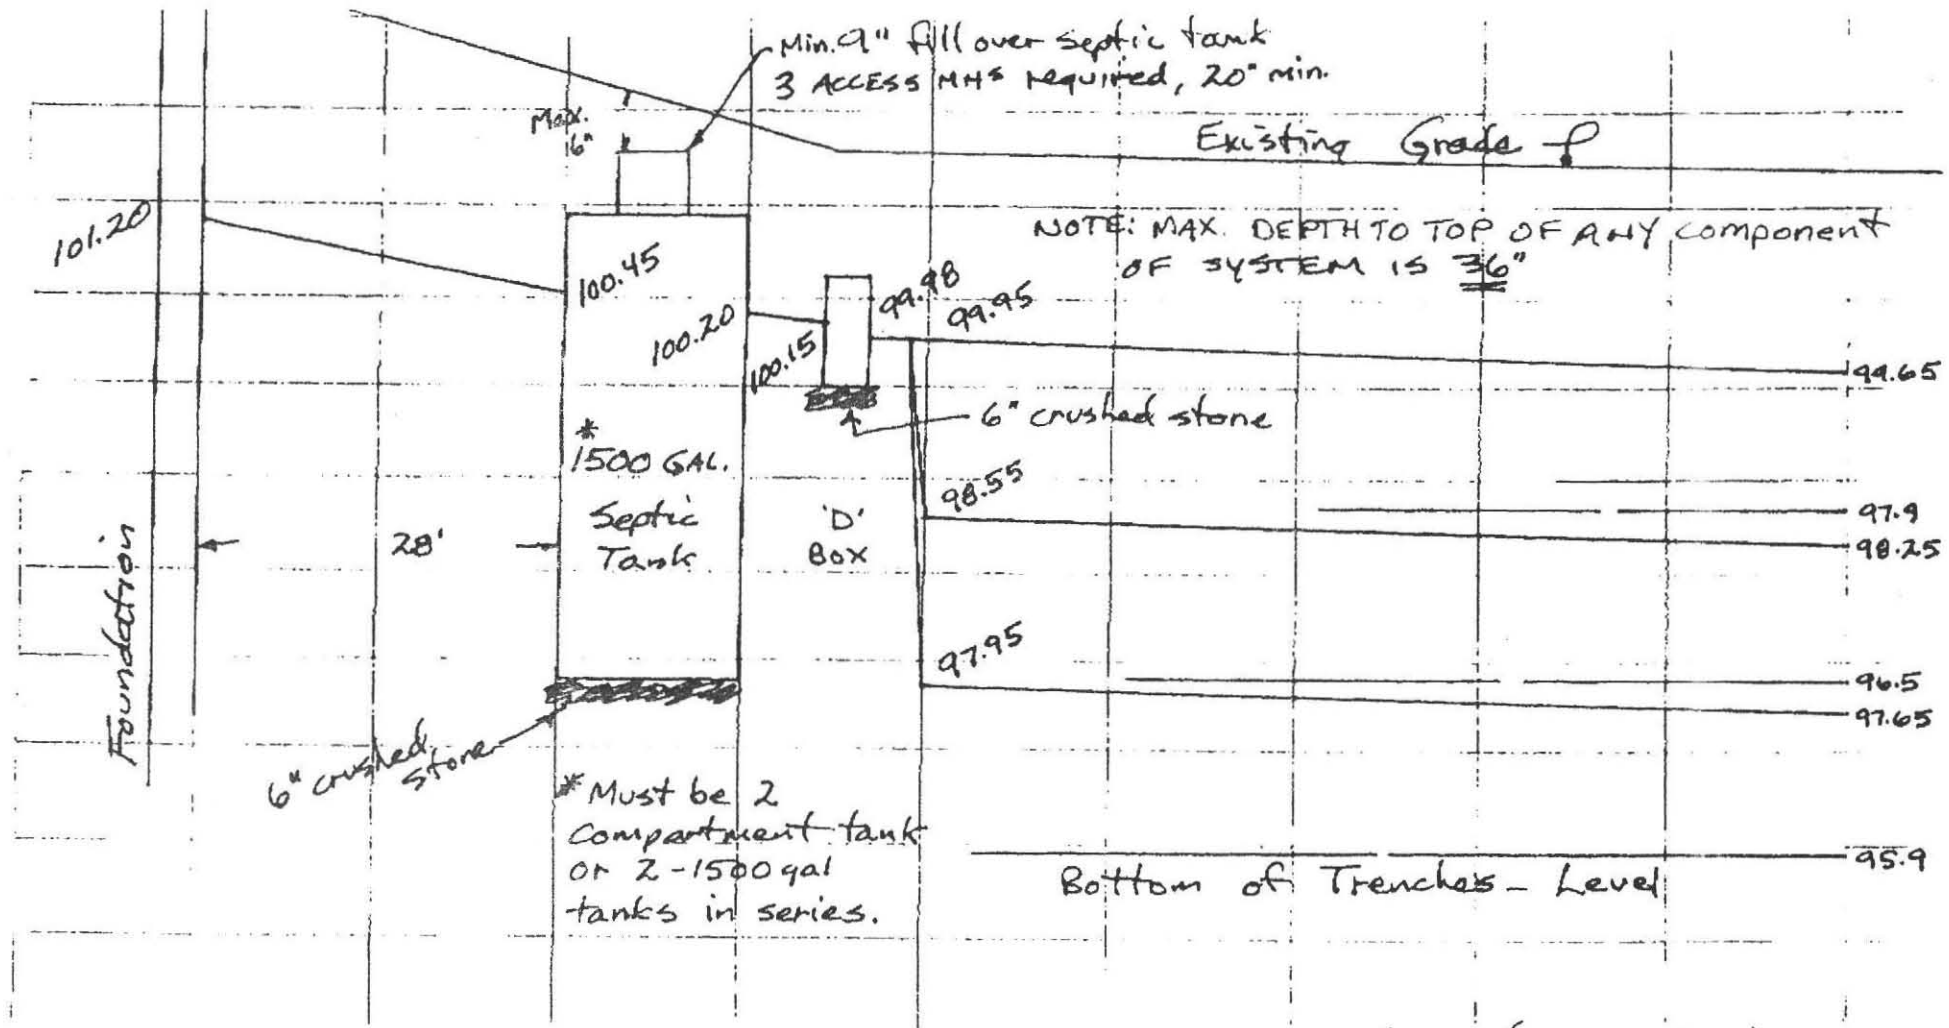 Min. 9" fill over septic tank
3 ACCESS MHS required, 20" min.
Max.
6"
Existing Grade
101.20
NOTE: MAX. DEPTH TO TOP OF ANY component
OF SYSTEM IS 36"
100.45
99.98
99.95
100.20
100.15
99.65
6" crushed stone
*
1500 GAL.
Septic
Tank
'D'
Box
98.55
97.9
98.25
28'
Foundation
97.95
96.5
97.65
6" crushed
stone
* Must be 2
Compartment tank
or 2-1500 gal
tanks in series.
95.9
Bottom of Trenches - Level